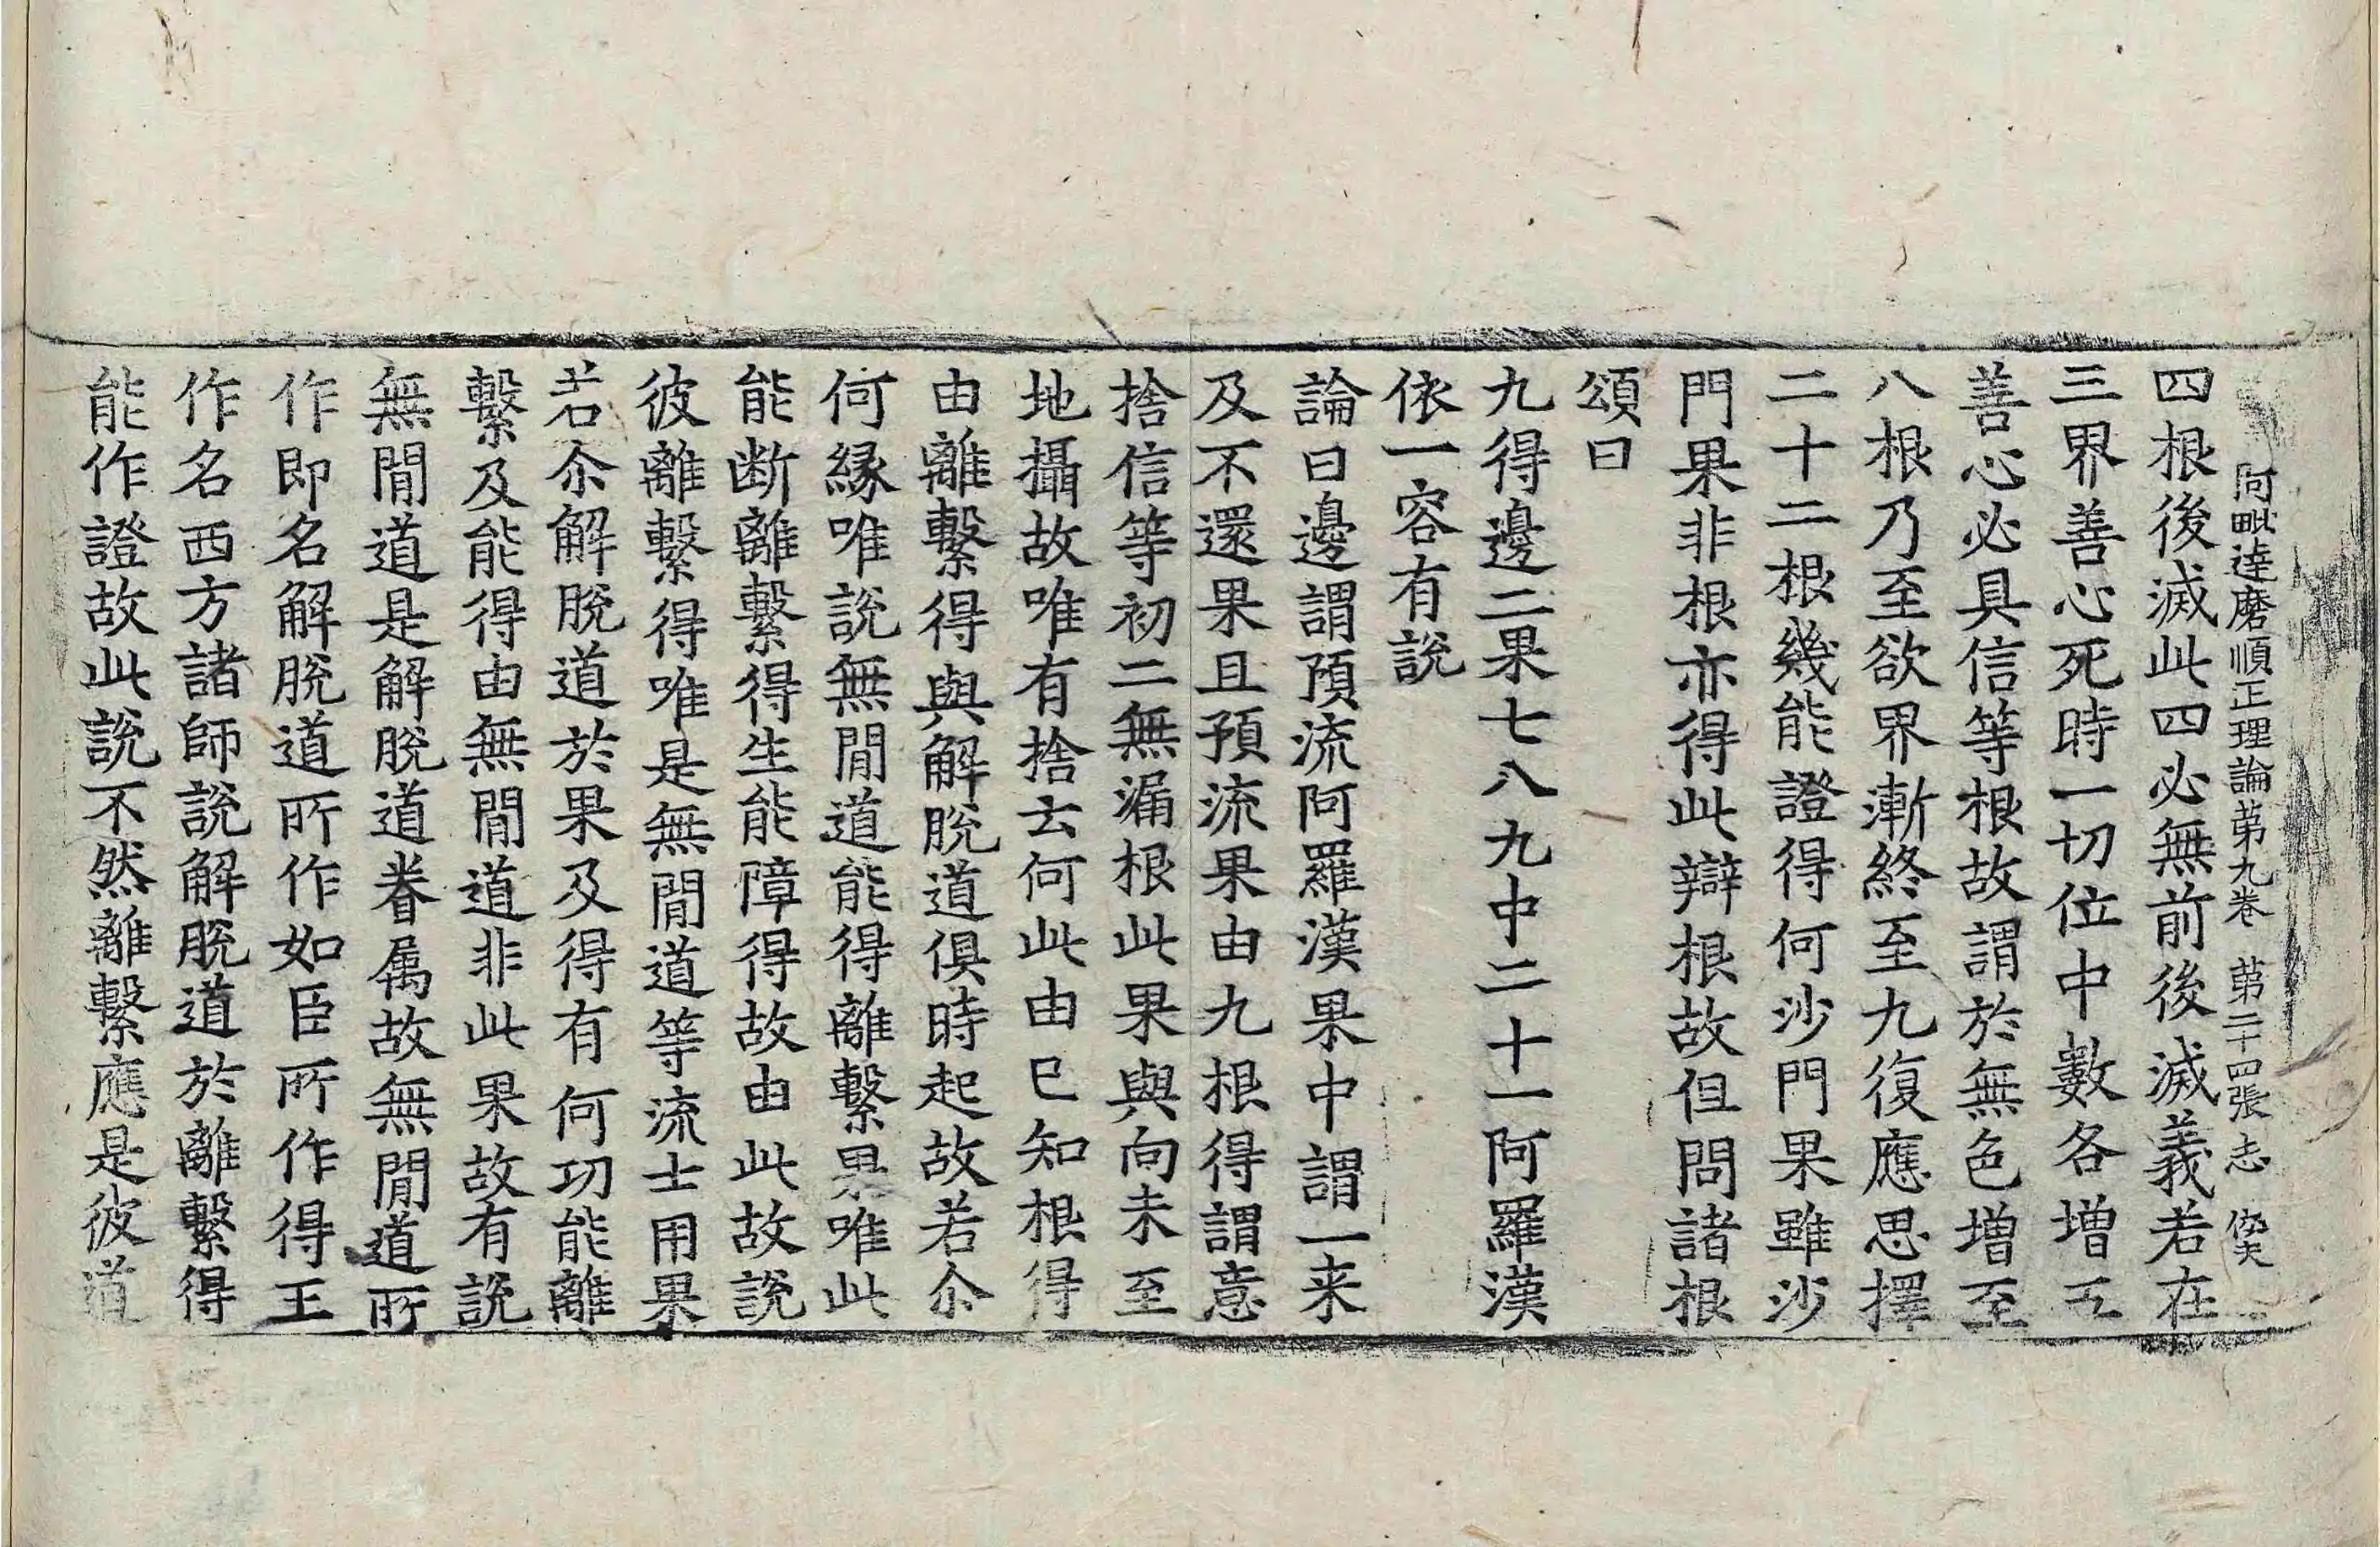 阿毗達磨順正理論苐九卷 苐二十四張 志
四根後滅此四必無前後滅義若在
三界善心死時一切位中數各增五
善心必具信等根故謂於無色增至
八根乃至欲界漸終至九復應思擇
二十二根幾能證得何沙門果雖沙
門果非根亦得此辯根故但問諸根
頌曰
九得邊二果七八九中二十一阿羅漢
依一容有說
論曰邊謂預流阿羅漢果中謂一来
及不還果且預流果由九根得謂意
捨信等初二無漏根此果與向未至
地攝故唯有捨去何此由已知根得
由離繫得與解脫道俱時起故若尒
何緣唯說無間道能得離繫果唯此
能断離繫得生能障得故由此故說
彼離繫得唯是無間道等流士用果
若尒解脫道於果及得有何功能離
繫及能得由無間道非此果故有說
無間道是解脫道眷属故無間道所
作即名解脫道所作如臣所作得王
作名西方諸師說解脫道於離繫得
能作證故此說不然離繫應是彼道